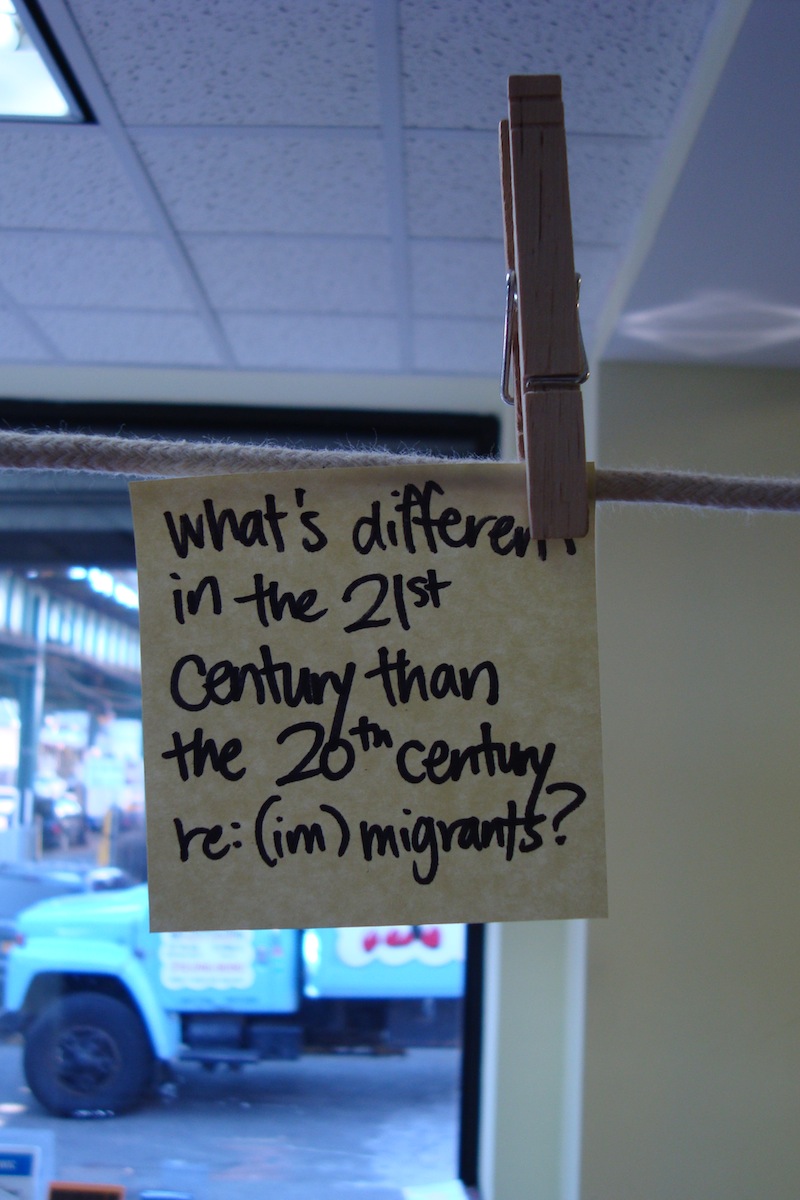 what's different
in the 21st
century than
the 20th century
re: (im)migrants?